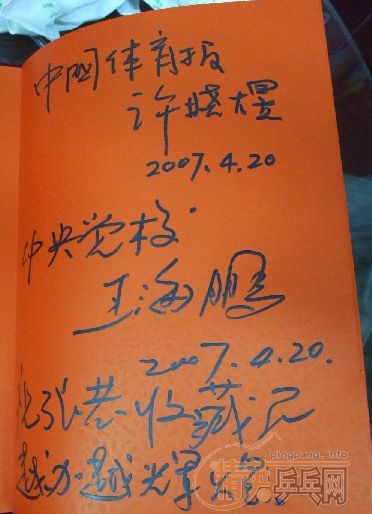 中国体育报
许晓煜
2007.4.20
中央党校
王海鹏
2007.4.20.
张 收藏
越办越光辉
pingpang.info
精英乒乓网